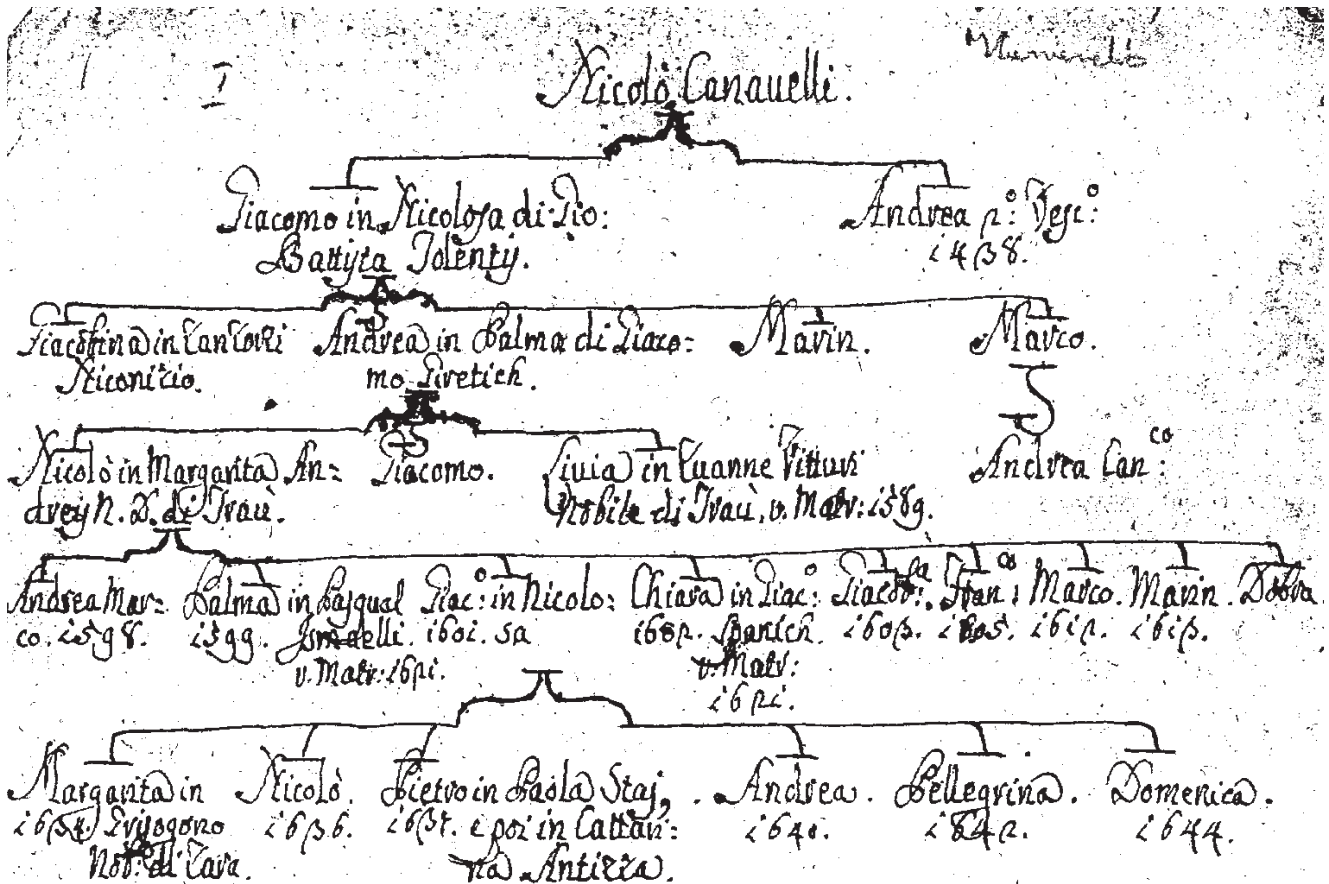 I
Nicolò Canauelli.
Giacomo in Nicolosa di Gio:
Battista Tolentij.
Andrea Vesc:o
Giacobina in
Andrea in Palma di Giaco:
mo
Marin.
Marco.
Nicolò in Margarita An:
dreij N. D. di Traù.
Giacomo.
Liuia in Zuanne Vitturi
Nobile di Traù. v. Matr: 1589.
Andrea Can:co
Andrea Mar:
co. 1598.
Palma in Pasqual
1599.
v. Matr:
Giac:o in Nicolo:
1601. sa
Chiara in Giac:o
Spanich.
v. Matr:
Fran:co
Marco.
Marin.
Dobra
Margarita in
Grisogono
Nob: di Zara.
Nicolò.
1636.
Pietro in Paola Staj,
e poi in Cattari:
na Antizza.
Andrea.
1640.
Pellegrina.
1642.
Domenica.
1644.